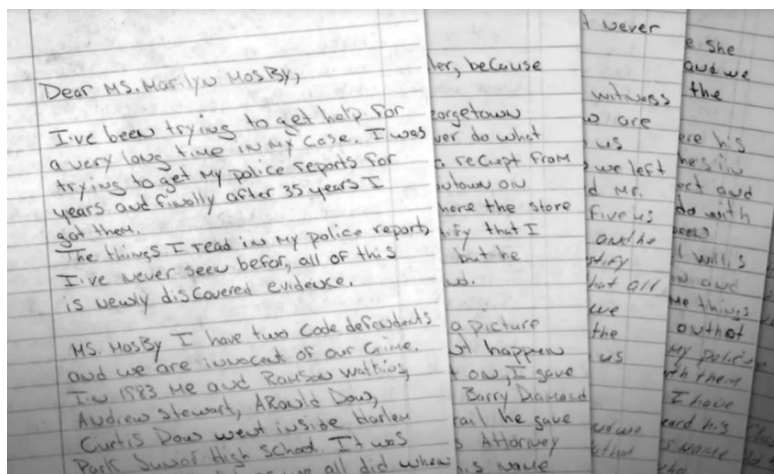 Dear MS. Marilyn Mosby,
I've been trying to get help for
a very long time in my case. I was
trying to get my police reports for
years and finally after 35 years I
got them.
The things I read in my police report,
I've never seen befor, all of this
is newly discovered evidence.
MS. Mosby I have two Codedefendents
and we are innocent of our Crime.
In 1983 Me and Ransom Watkins,
Andrew Stewart, ARould Dow,
Curtis Dow went inside Harlem
Park Junor High school. It was
all did when
ler, because
orgetown
ver do what
a recupt from
town on
here the store
tify that I
but he
nd.
a picture
happen
on, I gave
Barry Diamond
he gave
Attorney
his name
never
witness
are
us
we left
d Mr.
five us
and he
hat all
we
the
us
e she
and we
the
ere his
hes in
ect and
do with
been
willis
and
me things
onthat
My police
them
I have
eard his
s name